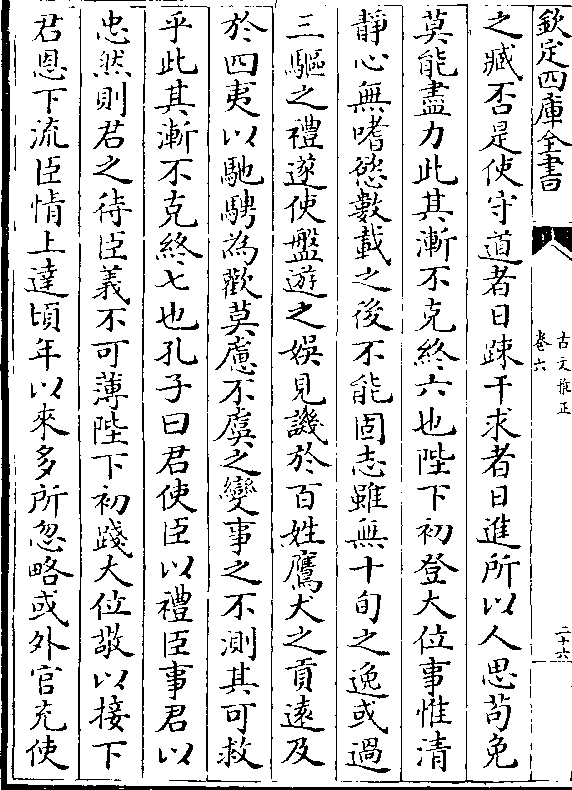 欽定四庫全書
古文雅正
卷六
二十六
之臧否是使守道者日疎干求者日進所以人思苟免
莫能盡力此其漸不克終六也陛下初登大位事惟清
靜心無嗜慾數載之後不能固志雖無十旬之逸或過
三驅之禮遂使盤遊之娛見譏於百姓鷹犬之貢遠及
於四夷以馳騁為歡莫慮不虞之變事之不測其可救
乎此其漸不克終七也孔子曰君使臣以禮臣事君以
忠然則君之待臣義不可薄陛下初踐大位敬以接下
君恩下流臣情上達頃年以來多所忽略或外官充使